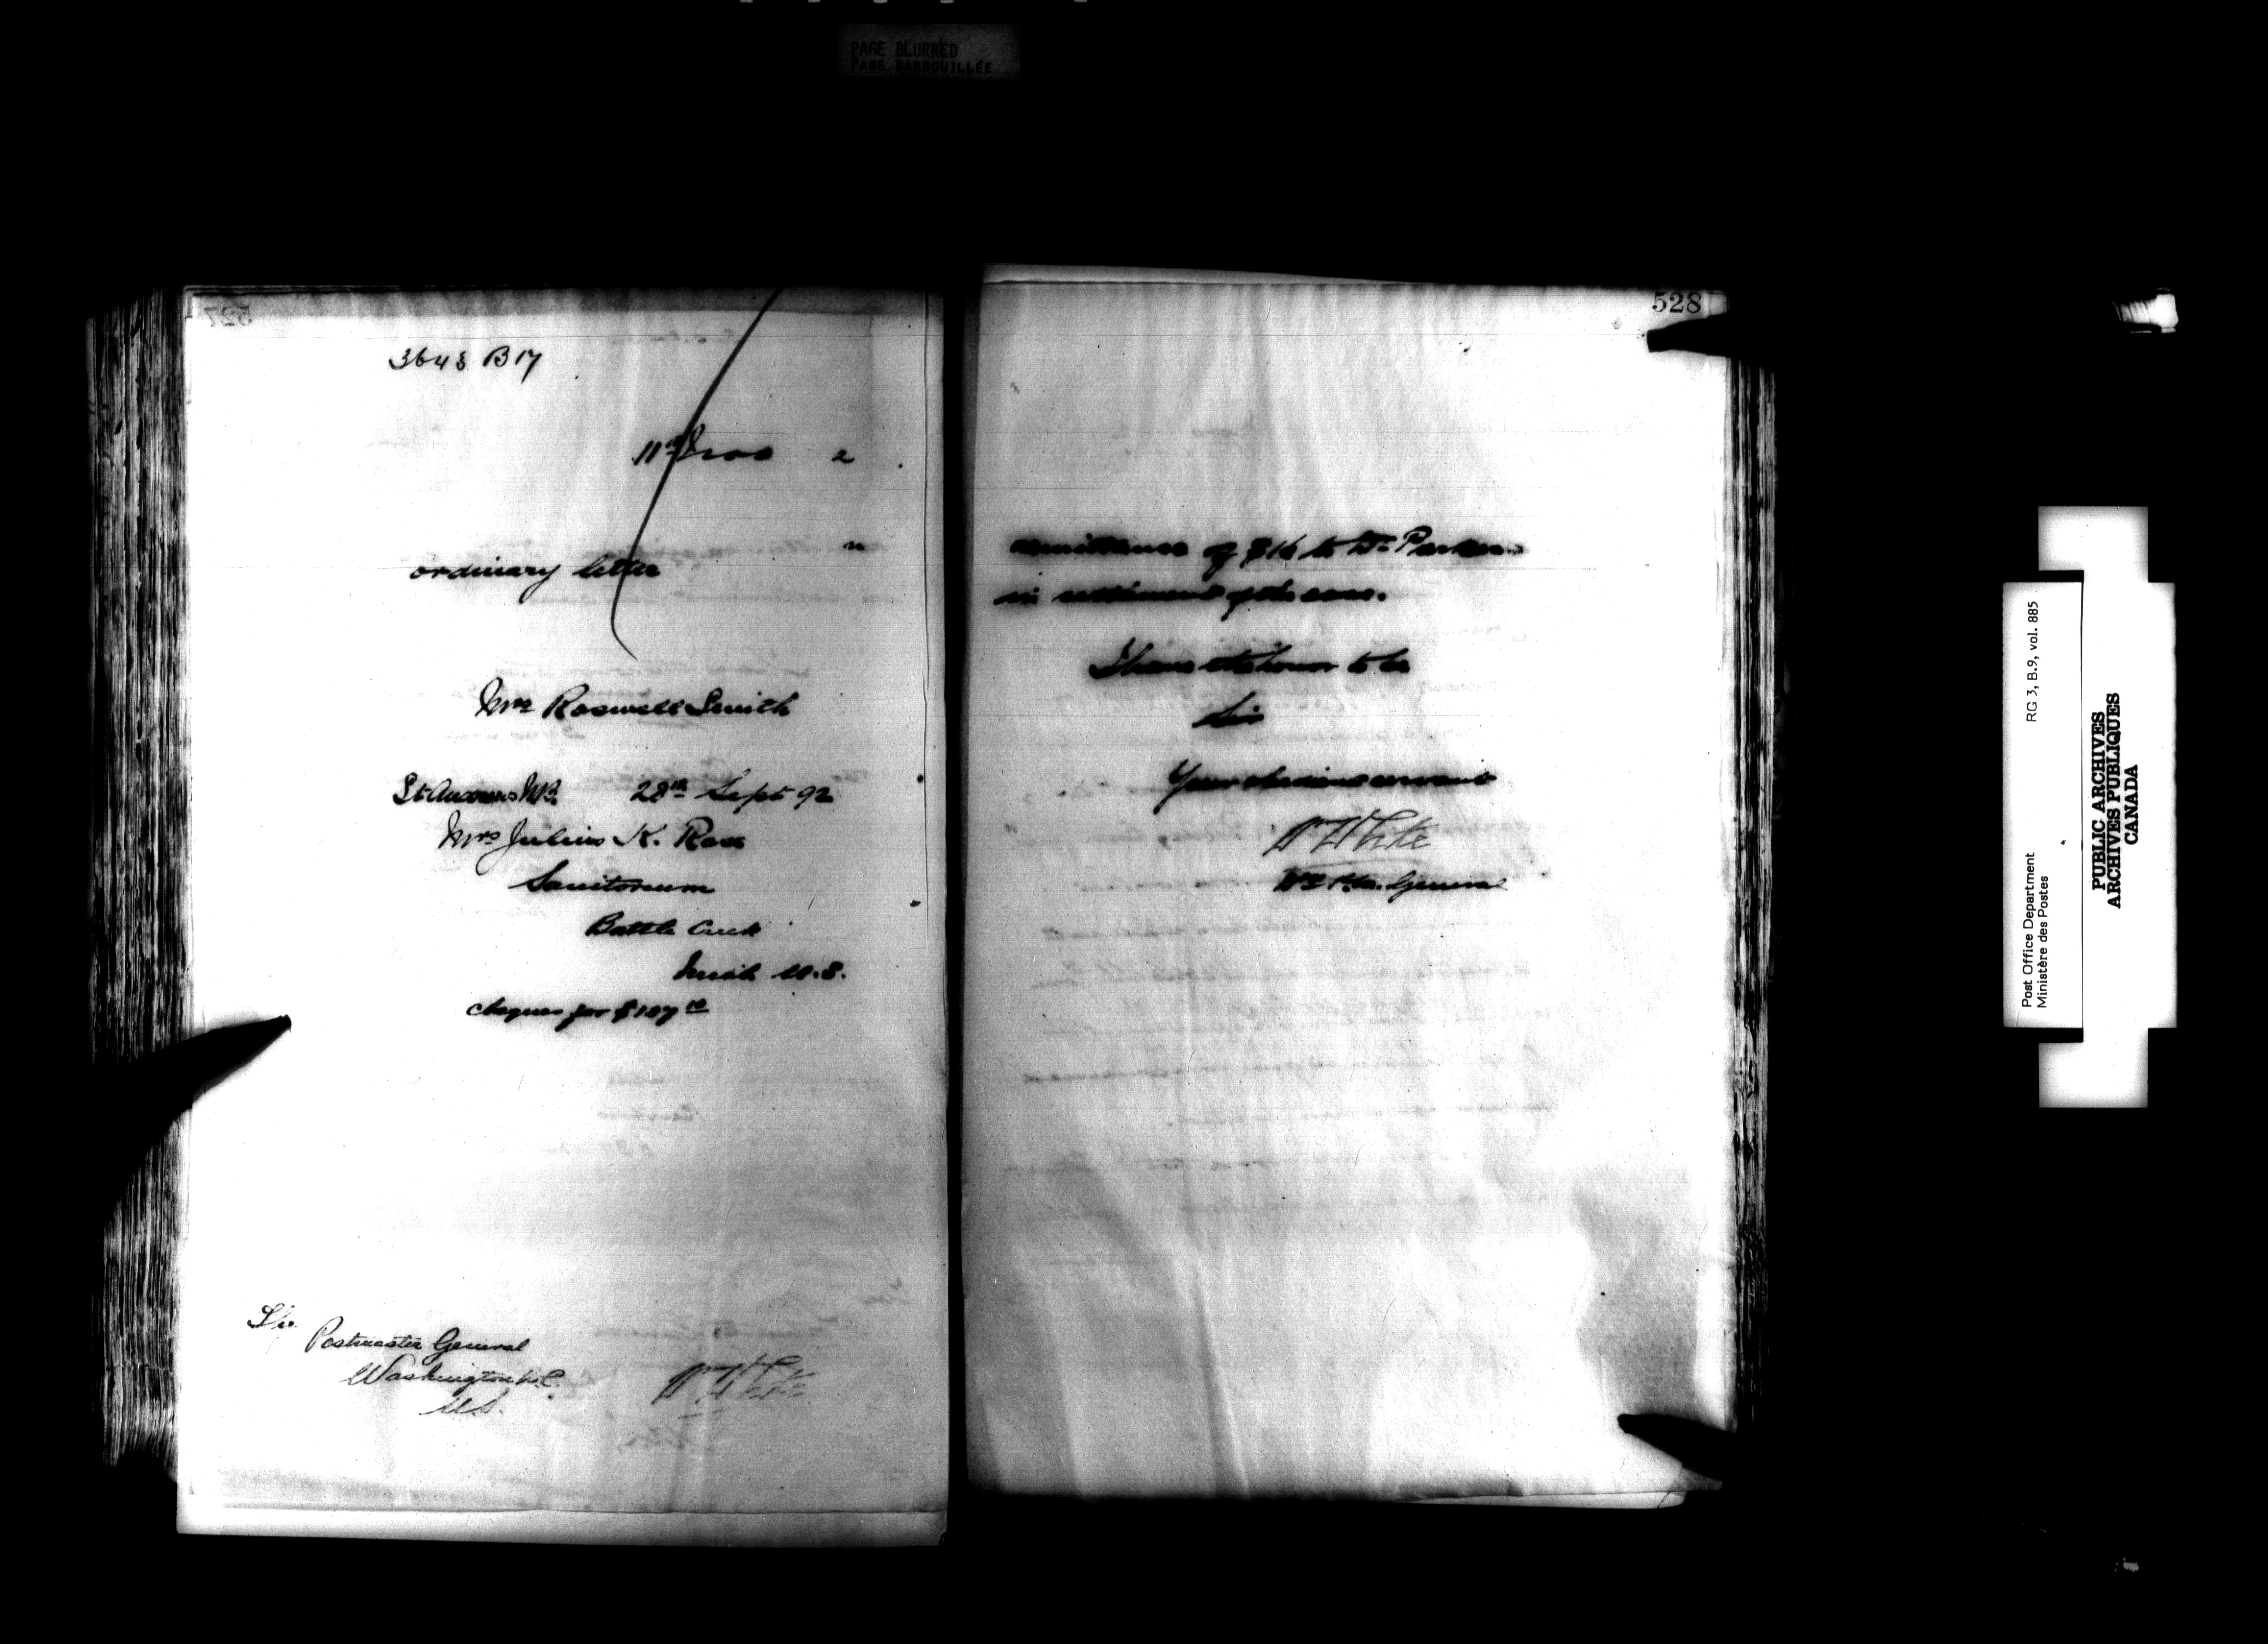 PAGE BLURRED
PAGE BARBOUILLÉE
527
3643 B 17
11th Nov 2
ordinary letter "
Mrs Roswell Smith
St Andrews N.B. 28th Sept 92
Mrs Julius K. Rose
Sanitorium
Battle Creek
Mich U.S.
cheques for $107 10
The
Postmaster General
Washington D.C.
U.S.
W White
528
remittance of $16 to Dr Parker
in settlement of the case.
I have the honor to be
Sir
Your obedient servant
W White
General
Post Office Department RG 3, B.9, vol. 885
Ministère des Postes
PUBLIC ARCHIVES
ARCHIVES PUBLIQUES
CANADA